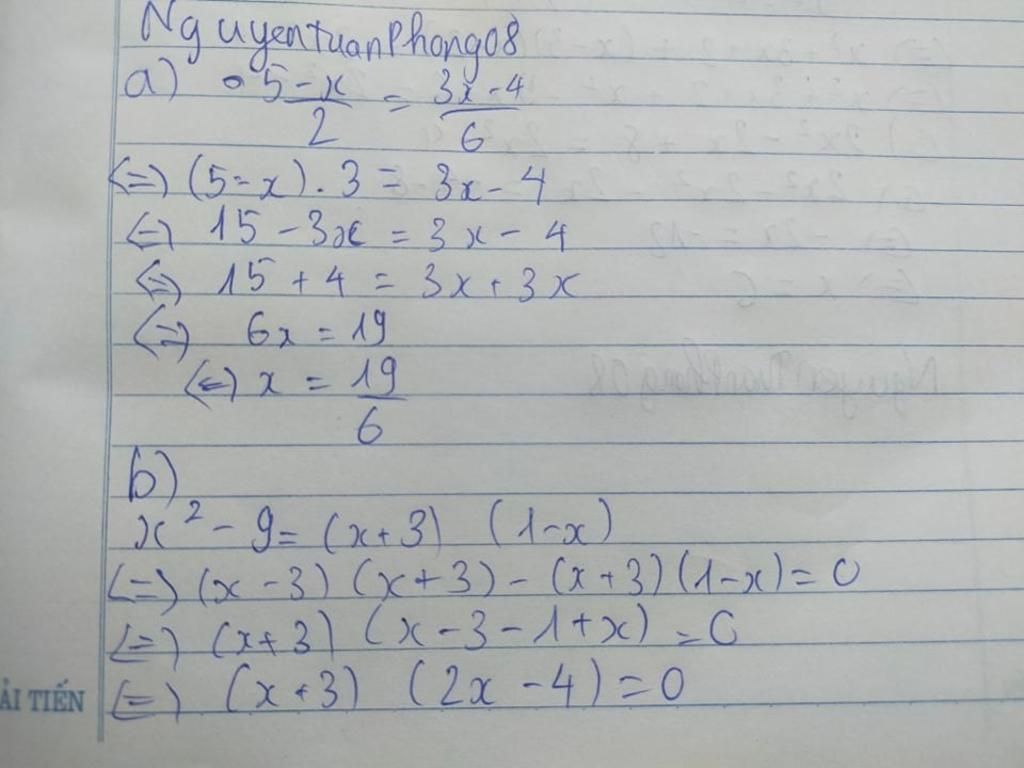 NguyentuanPhong08
a) • 5-x/2 = 3x-4/6
<=> (5-x).3 = 3x-4
<=> 15-3x = 3x-4
<=> 15+4 = 3x+3x
<=> 6x = 19
<=> x = 19/6
b)
x² - 9 = (x+3) (1-x)
<=> (x-3) (x+3) - (x+3) (1-x) = 0
<=> (x+3) (x-3-1+x) = 0
<=> (x+3) (2x-4) = 0
ẢI TIẾN